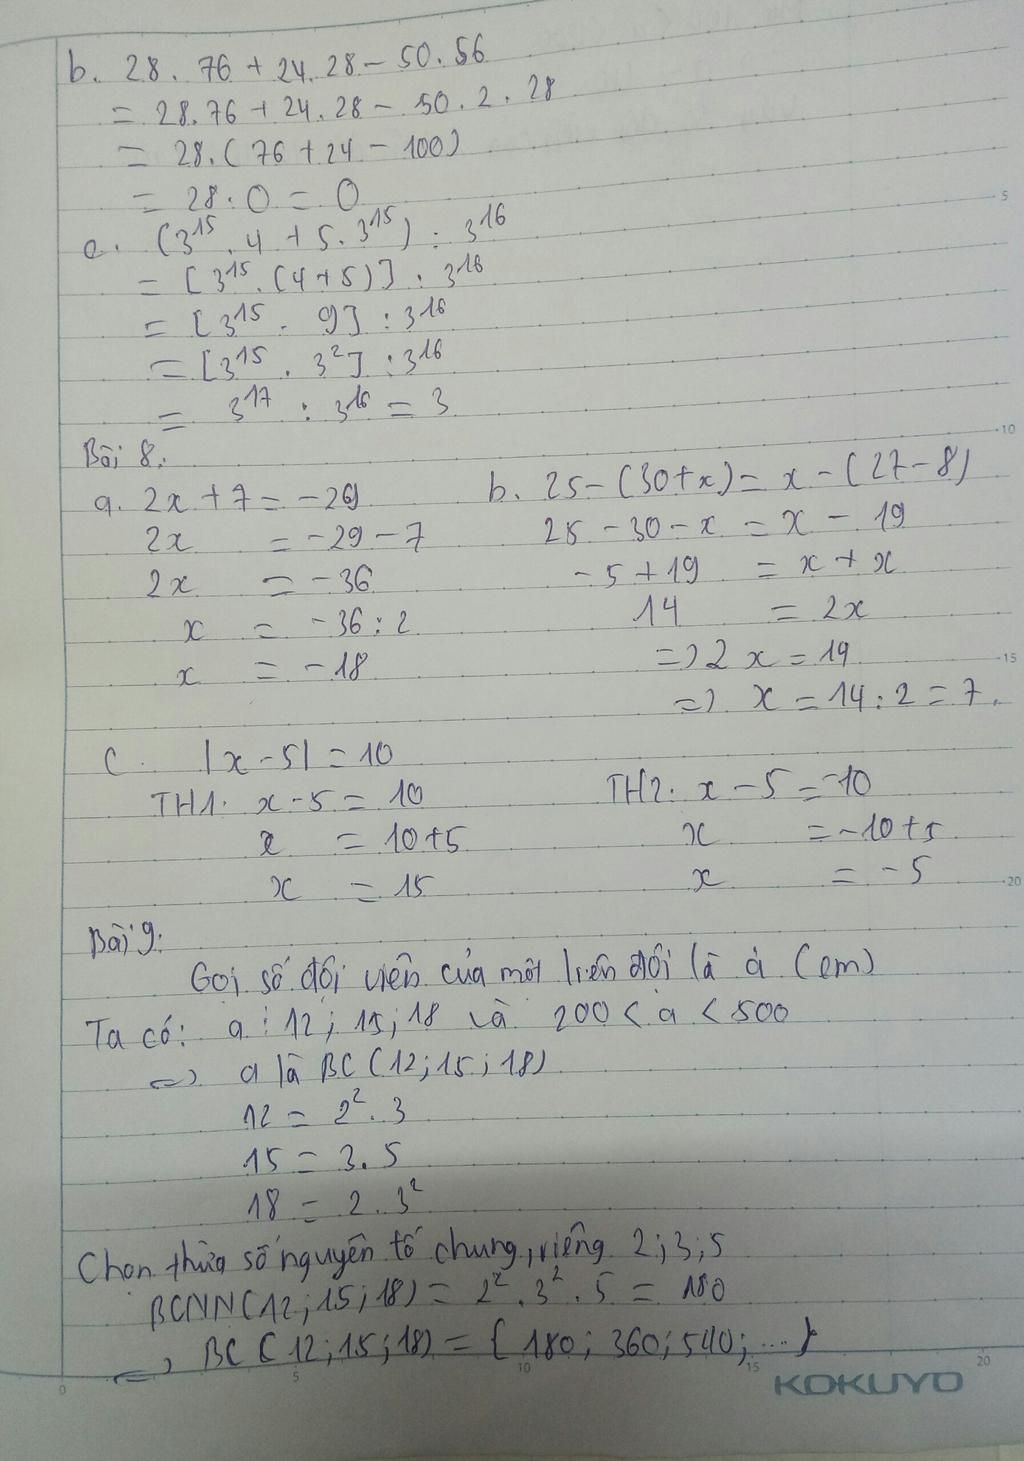 b. 28. 76 + 24. 28 - 50. 56
= 28.76 + 24. 28 - 50. 2. 28
= 28. (76 + 24 - 100)
= 28. 0 = 0
c. (3¹⁵. 4 + 5. 3¹⁵) : 3¹⁶
= [3¹⁵. (4+5)] : 3¹⁶
= [3¹⁵. 9] : 3¹⁶
= [3¹⁵. 3²] : 3¹⁶
= 3¹⁷ : 3¹⁶ = 3
Bài 8:
a. 2x + 7 = -29
2x = -29 - 7
2x = -36
x = -36 : 2
x = -18
b. 25 - (30+x) = x - (27-8)
25 - 30 - x = x - 19
-5 + 19 = x + x
14 = 2x
=> 2x = 14
=> x = 14 : 2 = 7.
c. |x - 5| = 10
TH1: x - 5 = 10
x = 10 + 5
x = 15
TH2: x - 5 = -10
x = -10 + 5
x = -5
Bài 9:
Gọi số đội viên của một liên đội là a (em)
Ta có: a ⋮ 12; 15; 18 và 200 < a < 500
=> a là BC (12; 15; 18)
12 = 2². 3
15 = 3. 5
18 = 2. 3²
Chọn thừa số nguyên tố chung, riêng 2; 3; 5
BCNN(12; 15; 18) = 2². 3². 5 = 180
=> BC (12; 15; 18) = {180; 360; 540; ...}
KOKUYO